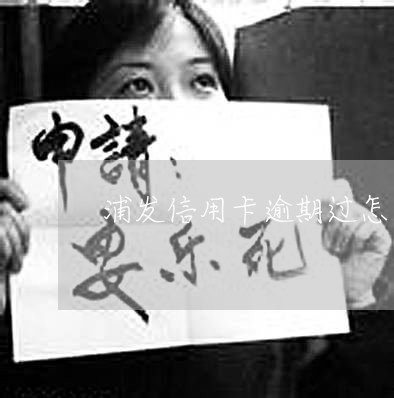 申請:
浦发信用卡逾期过怎
要乐死